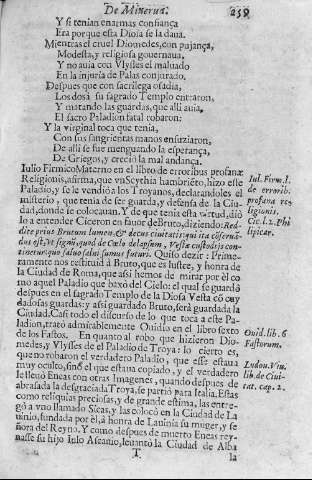 De Minerua. 259
Y si tenian enarmas confiança
Era por que esta Diosa se la daua.
Mientras el cruel Diomedes, con pujança,
Modesta, y religiosa gouernaua,
Y no auia con Vlysses el maluado
En la injuria de Palas conjurado.
Despues que con sacrilega osadia,
Los dos à su sagrado Templo entraron,
Y matando las guardas, que alli auia,
El sacro Paladion fatal robaron:
Y la virginal toca que tenia,
Con sus sangrientas manos ensuziaron,
De alli se fue menguando la esperança,
De Griegos, y creciò la mal andança.
Iulio Firmico Materno en el libro de erroribus profanæ
Religionis, afirma, que vn Scythia hambriẽto, hizo este
Paladio, y se le vendiò a los Troyanos, declarandoles el
misterio, que tenia de ser guarda, y defensa de la Ciu-
dad, donde le colocauan. Y de que tenia esta virtud, diò
lo a entender Ciceron en fauor de Bruto, diziendo: Red-
dite prius Brutum lumen, & decus ciuitatis: qui ita cõserua-
dus est, vt signũ, quod de Cœlo delapsum, Vestæ custodijs con-
tinetur: quo saluo salui sumus futuri. Quiso dezir: Prime-
ramente nos restituid à Bruto, que es lustre, y honra de
la Ciudad de Roma, que assi hemos de mirar por el co
mo aquel Paladio que baxò del Cielo: el qual se guardò
despues en el sagrado Templo de la Diosa Vesta cõ cuy
dadosas guardas: y assi guardado Bruto, serà guardada la
Ciudad. Casi todo el discurso de lo que toca a este Pa-
ladion, tratò admirablemente Ouidio en el libro sexto
de los Fastos. En quanto al robo que hizieron Dio-
medes, y Vlysses de el Paladio de Troya: lo cierto es,
que no robaron el verdadero Paladio, que esse estaua
muy oculto, sinò el que estaua copiado, y el verdadero
se lleuò Eneas con otras Imagenes, quando despues de
abrasada la desgraciada Troya, se partiò para Italia. Estas
como reliquias preciosas, y de grande estima, las entre-
gò a vno llamado Sicas, y las colocò en la Ciudad de La
uinio, fundada por èl, à honra de Lauinia su muger, y se
ñora del Reyno. Y como despues de muerto Eneas rey-
nasse su hijo Iulo Ascanio, leuantò la Ciudad de Alba
T. la
Iul. Firm. l.
de errorib.
profana re
ligionis.
Cic. l. 2. Phi
lipicar.
Ouid. lib. 6
Fastorum.
Ludou. Viu.
lib. de Ciui-
tat. cap. 2.